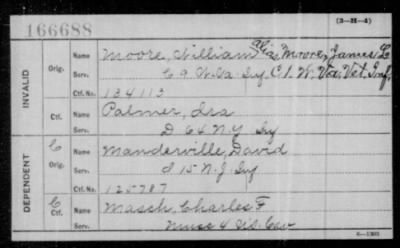 166688
(3-M-4)
INVALID
Orig.
Name Moore, William alias Moore, James L
Serv. C 9 W.Va Inf C 1 W. Va. Vet. Inf.
Ctf. No. 134113
Ctf.
Name Palmer, Ira
Serv. D 64 N.Y Inf
DEPENDENT
C
Orig.
Name Manderville, David
Serv. I 15 N.J Inf
Ctf. No. 125787
C
Ctf.
Name Masch, Charles F
Serv. Musc 4 Cav
6—1303